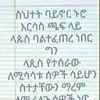 ስህተት ባይኖር ኑሮ
እርሳስ ጫፍ ላይ
ላጲስ ባልተፈጠረ ነበር
ግን
ላጲስ የተሰራው
ለሚሳሳቱ ሰዎች ሳይሆን
ስተታቸውን ማረም
ሰዎች ነው